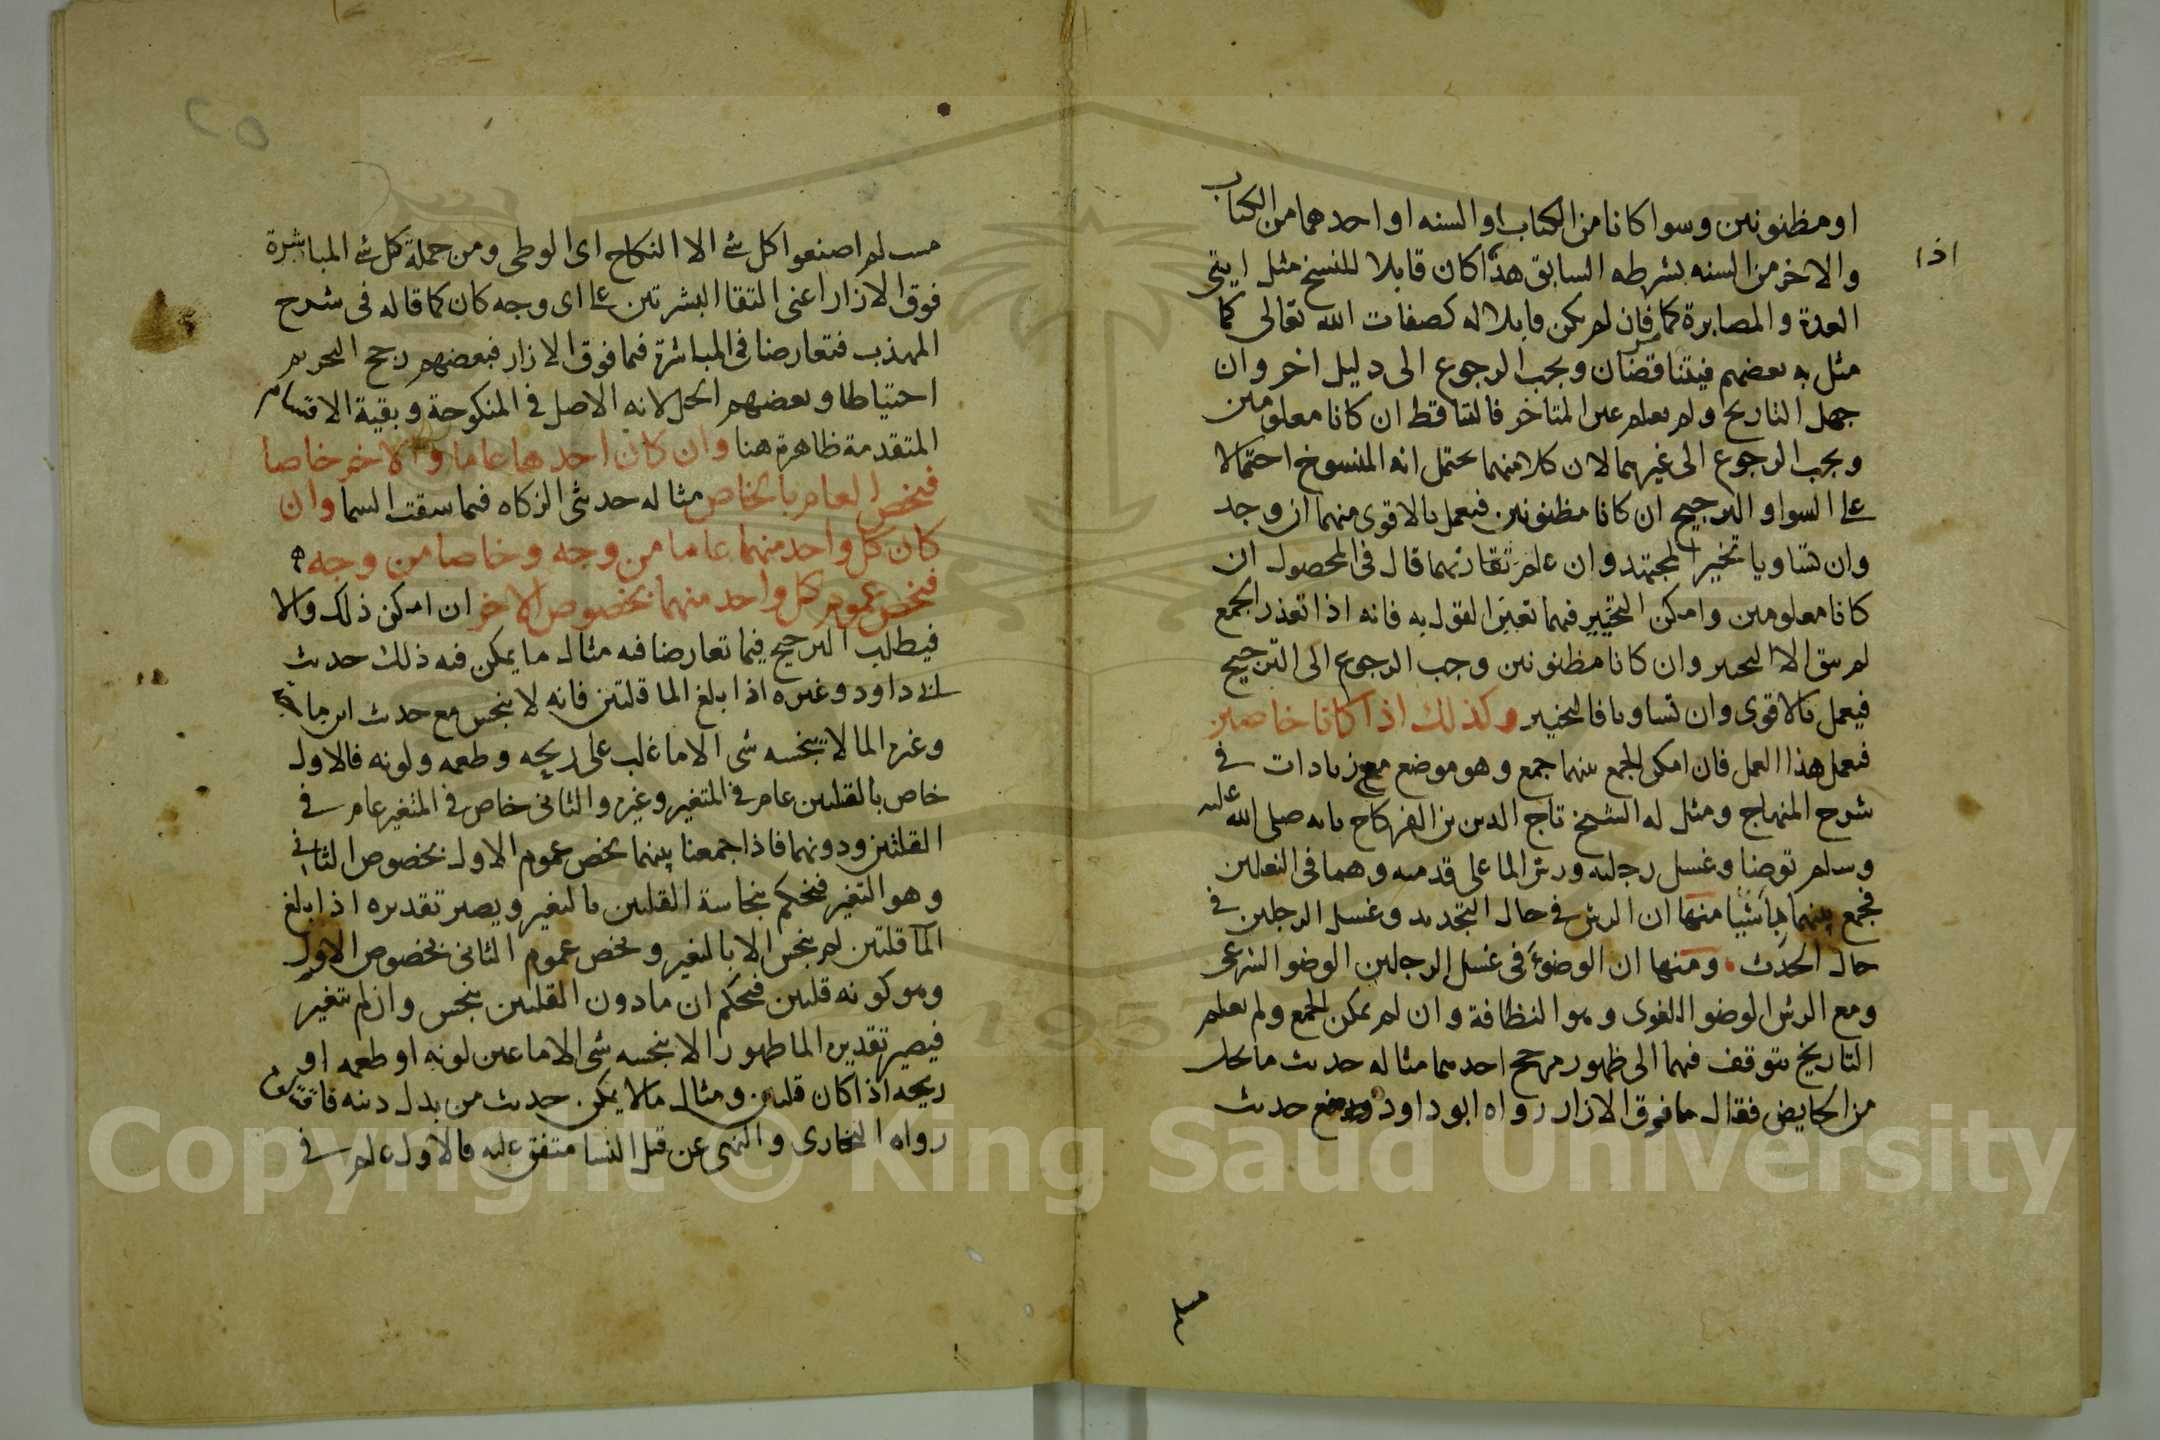 او مظنونين وسوا كانا من الكتاب او السنه او احدهما من الكتاب
والاخر من السنه بشرطه السابق هذا كان قابلا للنسخ مثل ايتى
اذا
العدة والمصابرة كما فان لم يكن قابلا له كصفات الله تعالى كما
مثل به بعضهم فيتناقضان ويجب الرجوع الى دليل اخر وان
جهل التاريخ ولم يعلم عين المتاخر فالتساقط ان كانا معلومين
ويجب الرجوع الى غيرهما لان كلا منهما يحتمل انه المنسوخ احتمالا
على السوا والترجيح ان كانا مظنونين فيعمل بالاقوى منهما ان وجد
وان تساويا تخير المجتهد وان علم تقارنهما قال فى المحصول ان
كانا معلومين وامكن التخيير فيهما تعين القول به فانه اذا تعذر الجمع
لم يبق الا التخيير وان كانا مظنونين وجب الرجوع الى الترجيح
فيعمل بالاقوى وان تساويا فالتخيير وكذلك اذا كانا خاصين
فيعمل هذا العمل فان امكن الجمع بينهما جمع وهو موضع مع زيادات فى
شرح المنهاج ومثل له الشيخ تاج الدين بن الفركاح بانه صلى الله عليه
وسلم توضا وغسل رجليه ورش الما على قدميه وهما فى النعلين
فجمع بينهما باشيا منها ان الرش فى حال التجديد وغسل الرجلين فى
حال الحدث ومنها ان الوضوء فى غسل الرجلين الوضو الشرعى
ومع الرش الوضو اللغوى وهو النظافة وان لم يمكن الجمع ولم يعلم
التاريخ يتوقف فيهما الى ظهور مرجح احدهما مثاله حديث ما يحل
من الحايض فقال ما فوق الازار رواه ابو داود مع حديث
مسلم
٢٥
مسلم اصنعوا كل شى الا النكاح اى الوطى ومن جملة كل شى المباشرة
فوق الازار اعنى التقا البشرتين على اى وجه كان كما قاله فى شرح
المهذب فتعارضا فى المباشرة فيما فوق الازار فبعضهم رجح التحريم
احتياطا وبعضهم الحل لانه الاصل فى المنكوحة وبقية الاقسام
المتقدمة ظاهرة هنا وان كان احدهما عاما والاخر خاصا
فيخص العام بالخاص مثاله حديثى الزكاه فيما سقت السما وان
كان كل واحد منهما عاما من وجه وخاصا من وجه
فيخص عموم كل واحد منهما بخصوص الاخر ان امكن ذلك والا
فيطلب الترجيح فيما تعارضا فيه مثال ما يمكن فيه ذلك حديث
ابى داود وغيره اذا بلغ الما قلتين فانه لا ينجس مع حديث ابن ماجه
وغيره الما لا ينجسه شى الا ما غلب على ريحه وطعمه ولونه فالاول
خاص بالقلتين عام فى المتغير وغيره والثانى خاص فى المتغير عام فى
القلتين ودونهما فاذا جمعنا بينهما يخص عموم الاول بخصوص الثانى
وهو التغير فنحكم بنجاسة القلتين بالتغير ويصير تقديره اذا بلغ
الما قلتين لم ينجس الا بالتغير ويخص عموم الثانى بخصوص الاول
وهو كونه قلتين فنحكم ان ما دون القلتين ينجس وان لم تغير
فيصير تقديره الما طهور الا ينجسه شى الا ما غير لونه او طعمه او
ريحه اذا كان قلتين ومثال ما لا يمكن حديث من بدل دينه فاقتلوه
رواه البخارى والنهى عن قتل النسا متفق عليه فالاول عام فى
Copyright © King Saud University
1957